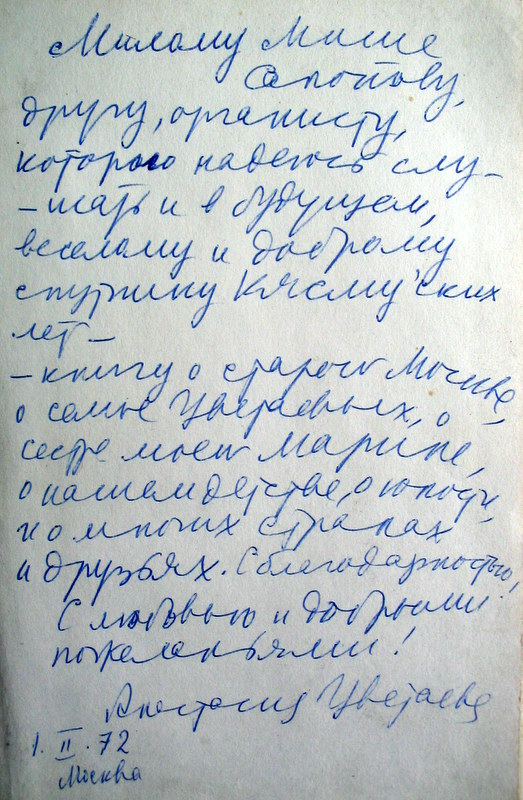 Милому Мише
Сапонову,
другу, органисту,
которого надеюсь слу-
-шать и в будущем,
веселому и доброму
спутнику Кясму'ских
лет –
– книгу о старой Москве,
о семье Цветаевых, о
сестре моей Марине,
о нашем детстве, о юности,
и о многих странах
и друзьях. С благодарностью,
С любовью и добрыми
пожеланьями!
Анастасия Цветаева
1. II. 72
Москва